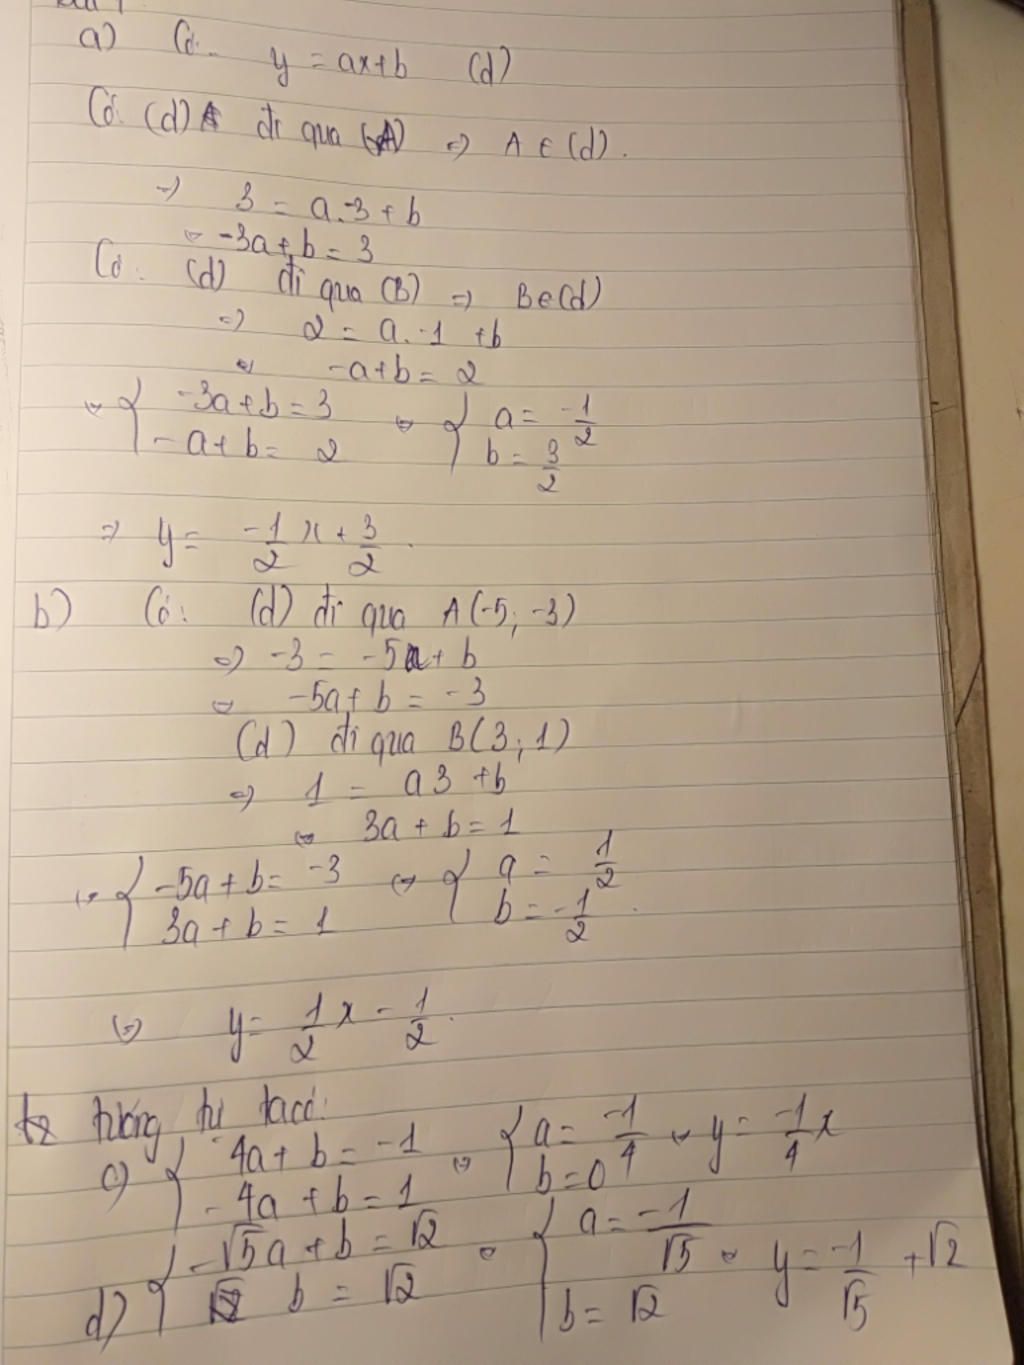 a) Có: y = ax+b (d)
Có: (d) đi qua (A) => A ∈ (d).
=> 3 = a.-3 + b
<=> -3a + b = 3
Có: (d) đi qua (B) => B∈(d)
=> 2 = a.-1 + b
<=> -a+b = 2
<=> { -3a+b = 3 <=> { a = -1/2
-a + b = 2 b = 3/2
=> y = -1/2 x + 3/2.
b) Có: (d) đi qua A(-5; -3)
=> -3 = -5a + b
<=> -5a + b = -3
(d) đi qua B(3; 1)
=> 1 = a3 + b
<=> 3a + b = 1
<=> { -5a + b = -3 <=> { a = 1/2
3a + b = 1 b = -1/2.
<=> y = 1/2 x - 1/2.
tương tự ta có:
c) { 4a + b = -1 <=> { a = -1/4 <=> y = -1/4 x
-4a + b = 1 b = 0
d) { -√5a + b = √2 <=> { a = -1/√5 <=> y = -1/√5 + √2
b = √2 b = √2